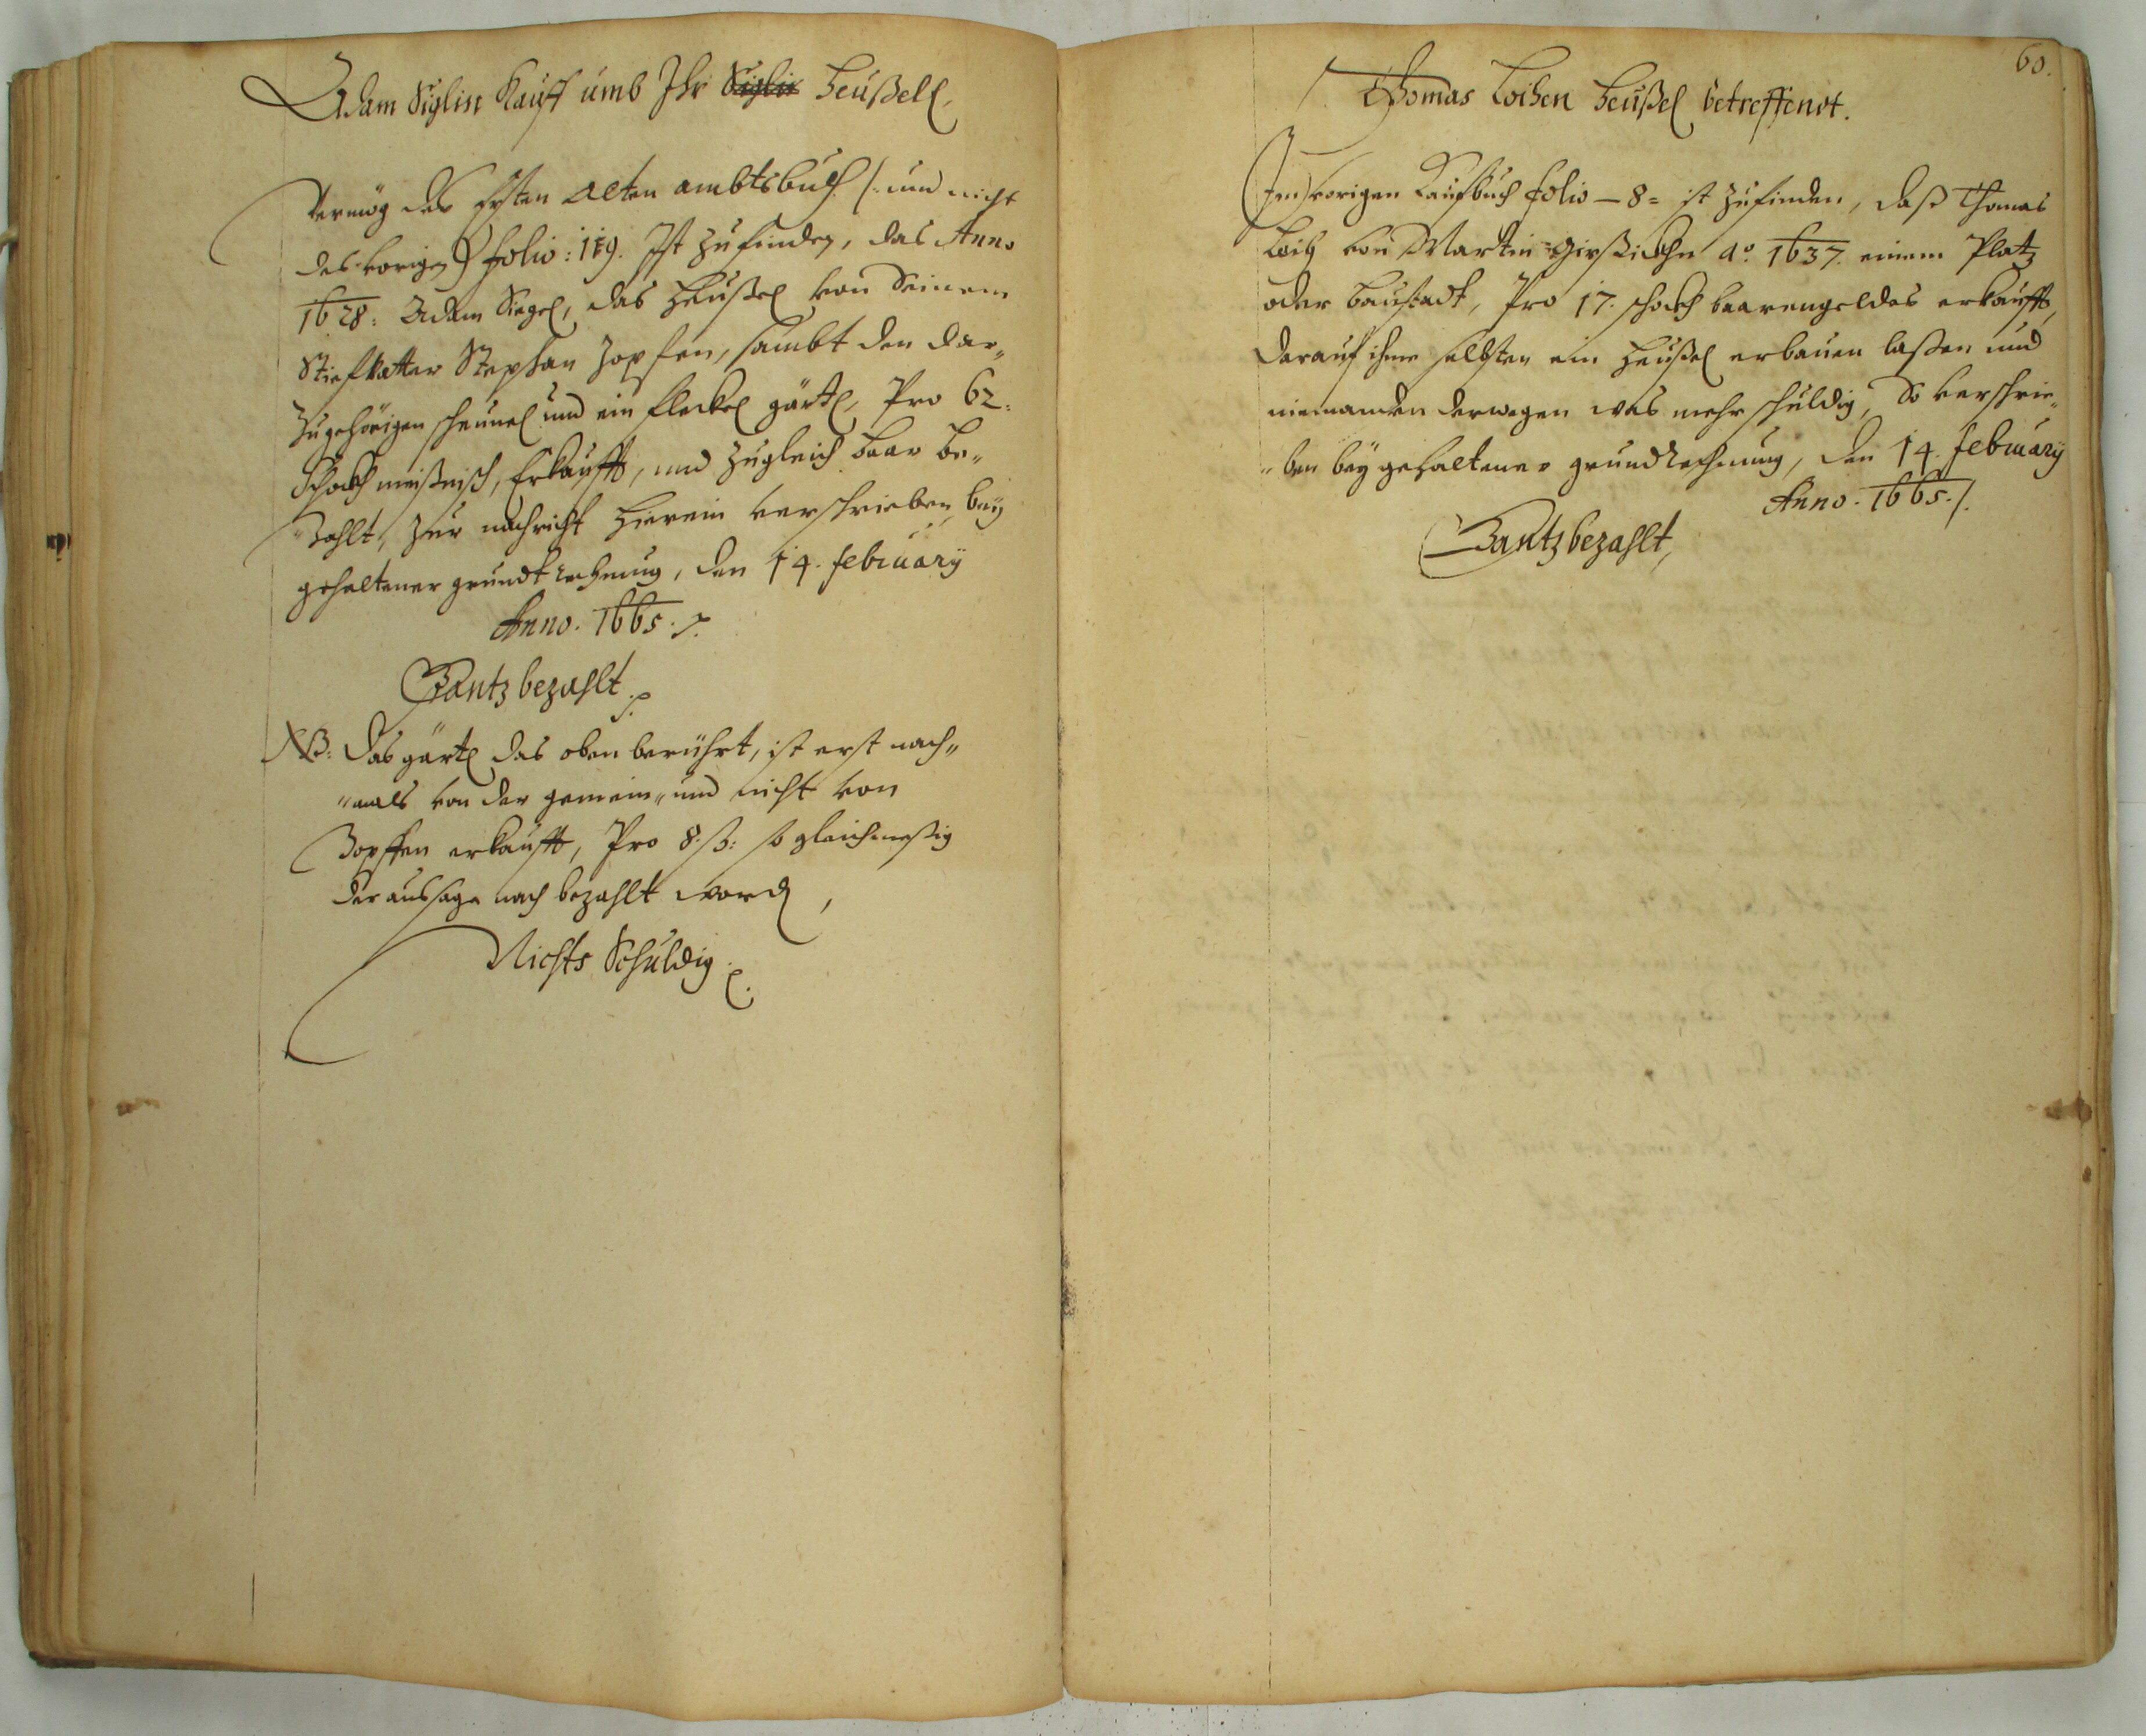 Adam Siglin Kauff umb Ihr Siglin Heußel
Vermög des Ersten Alten ambtsbuch /: und nicht
des vorigen :/ folio: 119. Ist zufinden, das Anno
1628: Adam Siegel, das Heußel von Seinem
Stiefvatter Stephan Zopfen, sambt den dar„
Zugehörigen scheunel und ein fleckel gärtl, Pro 62:
Schockh meißnisch, Erkaufft, und Zugleich baar be„
„Zahlt, Zur nachricht hierein verschrieben, beÿ
gehaltener grundt rechnung, den 14. februarÿ
Anno. 1665 ./.
Gantz bezahlt ./.
NB: das gärtl das oben berührt, ist erst nach„
„mals von der gemein„ und nicht von
Zopffen erkaufft, Pro 8. ß: so gleichmeßig
der aussage nach bezahlt word,
Nichts Schuldig
60.
Thomas Loihen Heußel betreffendt.
Im vorigen Kaufbuch folio – 8 = ist zufinden, daß Thomas
Loih von Martin ao 1637. einem Platz
oder baustadt, Pro 17. schockh baarengeldes erkaufft,
darauf ihme selbsten ein Heußel erbauen laßen und
niemanden derwegen was mehr schuldig, So verschrie„
„ben beÿ gehaltener grundrechnung, den 14. februarÿ
Anno. 1665 ./.
Gantz bezahlt,